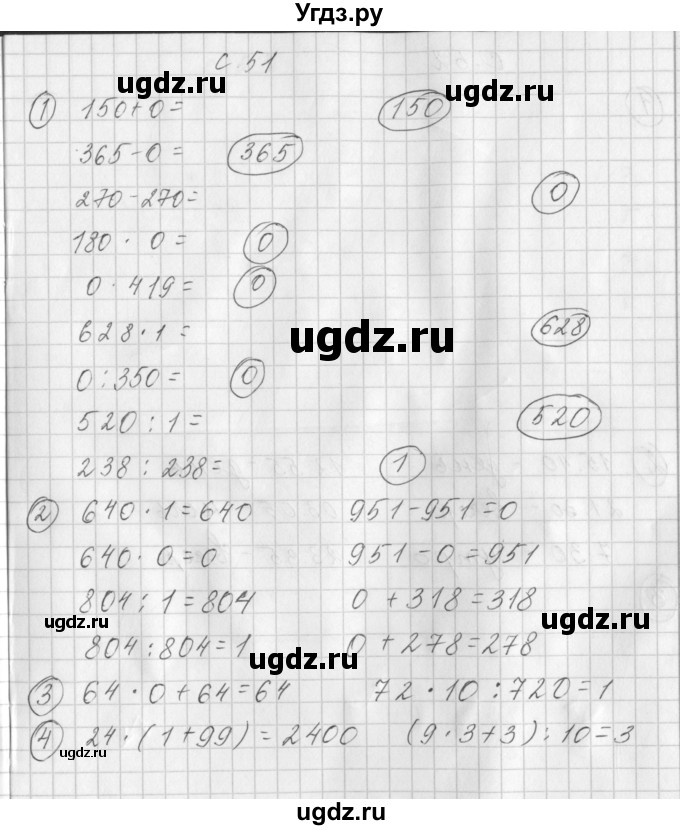 Угдз.ру
с. 51
ugdz.ru
ugdz.ru
1 150+0= 150
365-0= 365
270-270= 0
180 · 0 = 0
0 · 419 = 0
628 · 1 = 628
ugdz.ru
0 : 350 = 0
520 : 1 = 520
238 : 238 = 1
2 640 · 1 = 640 951-951=0
640 · 0 = 0 951-0=951
804 : 1 = 804 0+318=318
ugdz.ru ugdz.ru
804 : 804 = 1 0+278=278
ugdz.ru
3 64 · 0 + 64 = 64 72 · 10 : 720 = 1
4 24 · (1+99) = 2400 (9 · 3+3) : 10 = 3
ugdz.ru
ugdz.ru